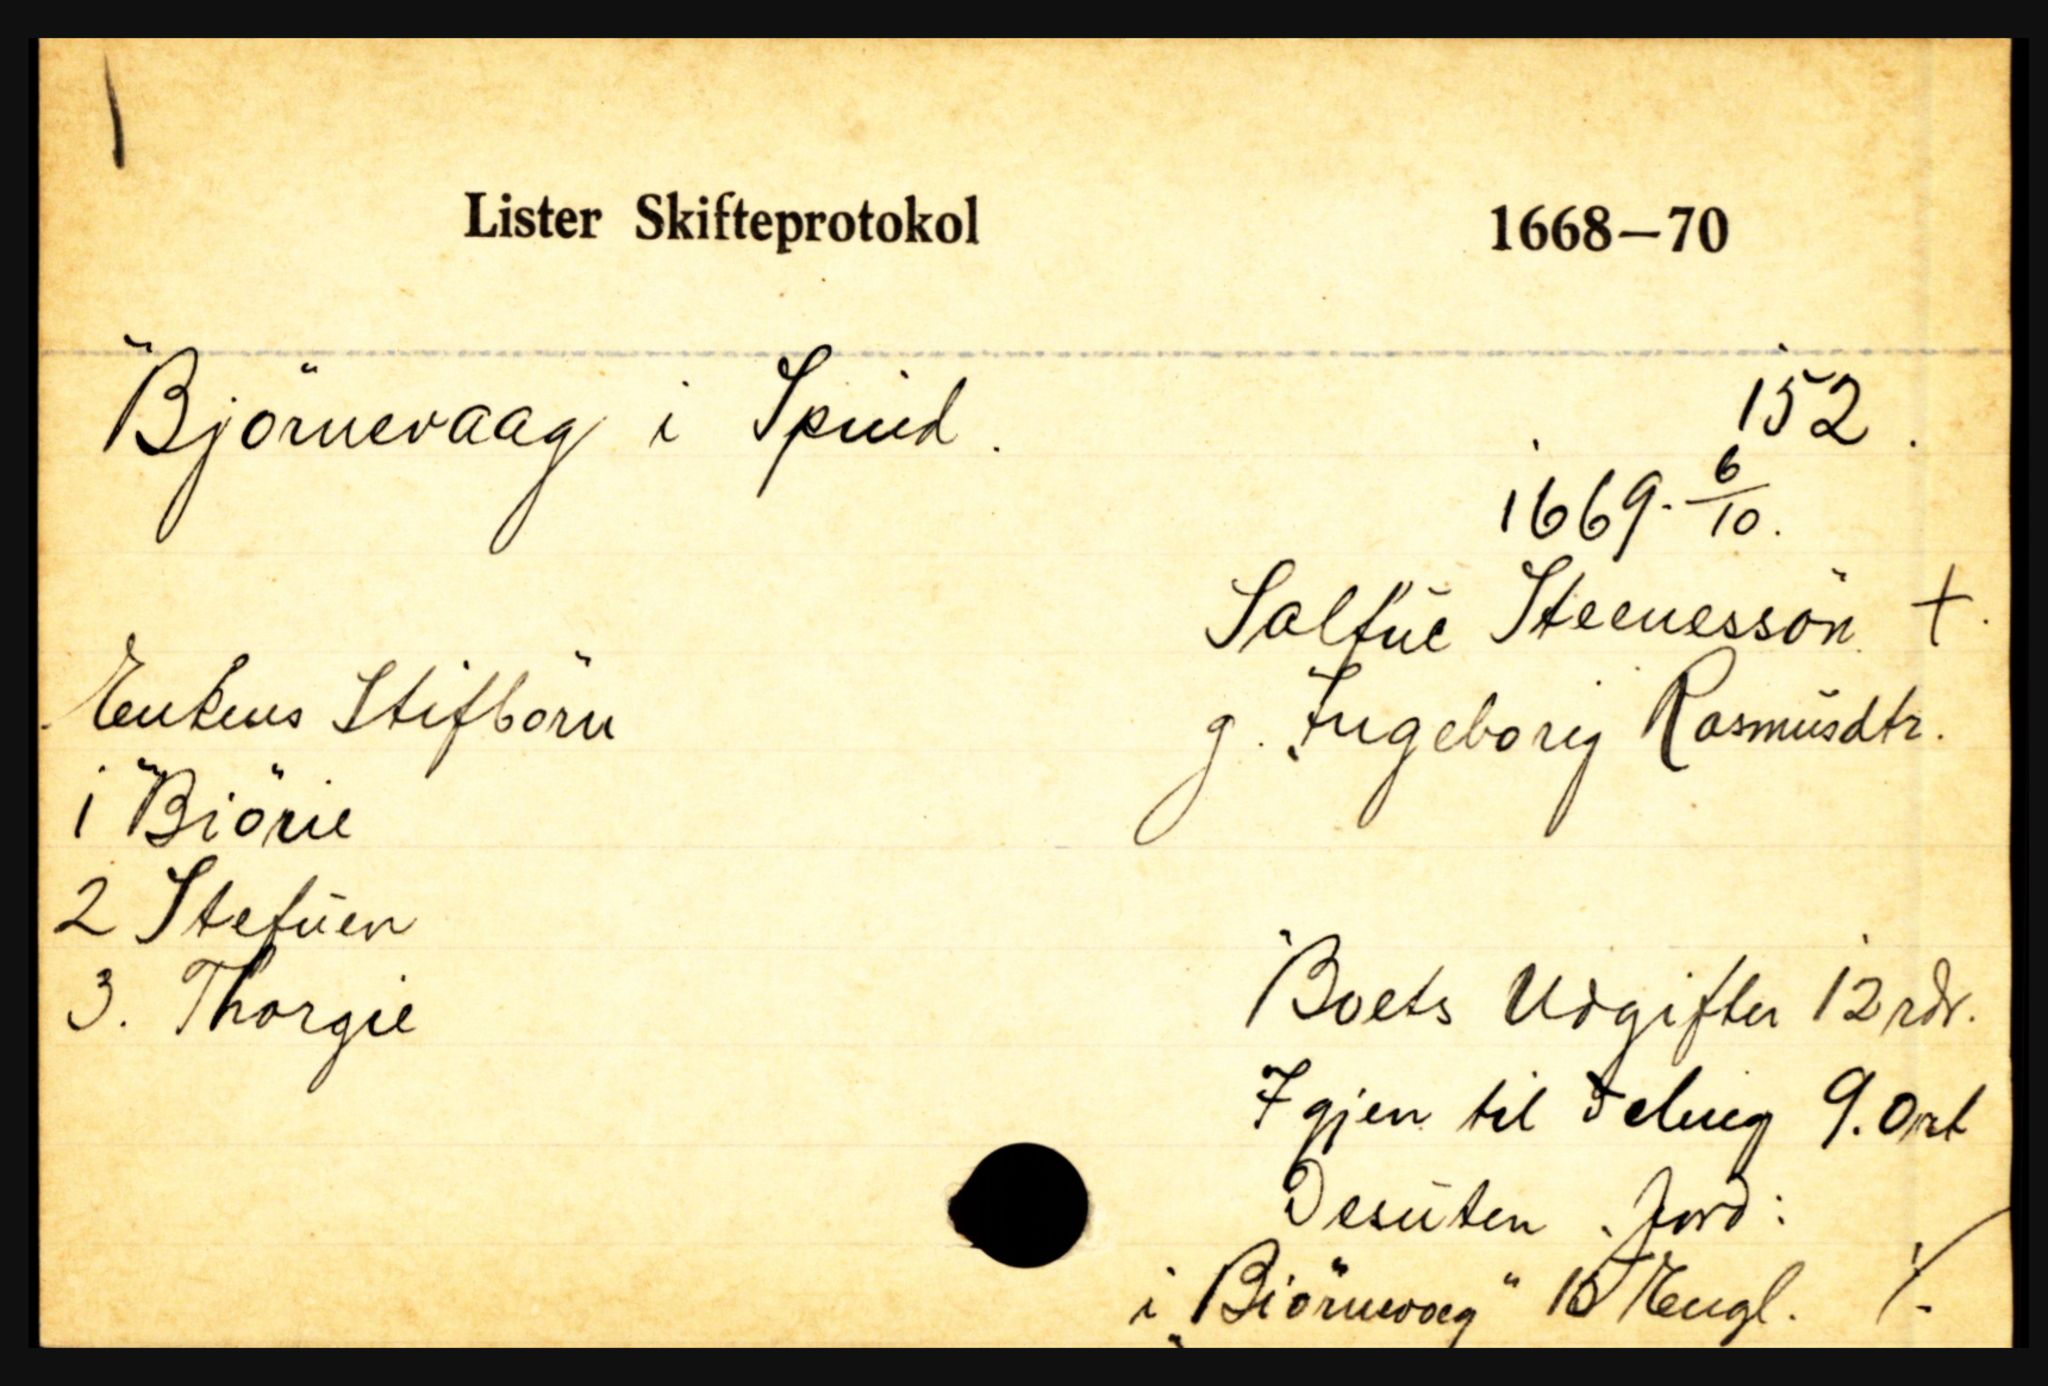 Lister Skifteprotokol 1668—70
Björnevaag i Spind. 152.
1669. 6/10.
Salfüe Steenessön +.
g. Ingeborig Rasmüsdtr.
Enkens Stifbörn
1 Biörie
2 Stefüen
3. Thorgie
Boets Udgifter 12 rdr.
Igjen til deling 9. Ort
Desüten Jord:
i Biörnevog" 1B Engl. ./.